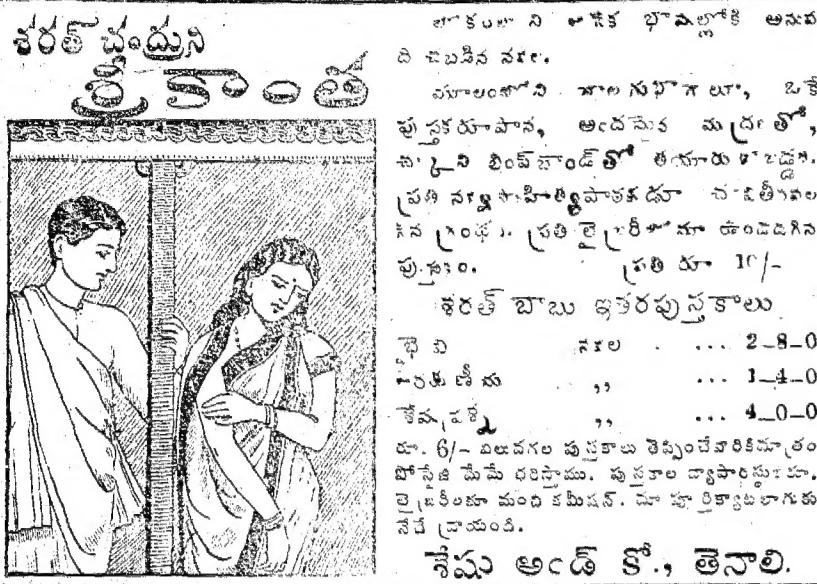 శరత్ చంద్రుని
శ్రీకాంత
భాషల్లోకి అనువ
దించబడిన నవల.
మూలంలోని నాలుగుభాగాలూ, ఒకే
పుస్తకరూపాన, అందమైన ముద్రణతో,
చక్కని లింప్‌బౌండ్‌తో తయారు
ప్రతి నవ్యసాహిత్యపాఠకుడూ
గ్రంథం. ప్రతి లైబ్రరీలోనూ ఉండదగిన
పుస్తకం. ప్రతి రూ 10/-
శరత్ బాబు ఇతరపుస్తకాలు
భైరవి నవల . ... 2-8-0
,, ... 1-4-0
శేషప్రశ్న ,, ... 4-0-0
రూ. 6/- విలువగల పుస్తకాలు తెప్పించేవారికిమాత్రం
పోస్టేజి మేమే భరిస్తాము. పుస్తకాల వ్యాపారస్తులకూ,
లైబ్రరీలకూ మంచి కమీషన్. మా పూర్తిక్యాటలాగుకు
నేడే వ్రాయండి.
శేషు అండ్ కో., తెనాలి.